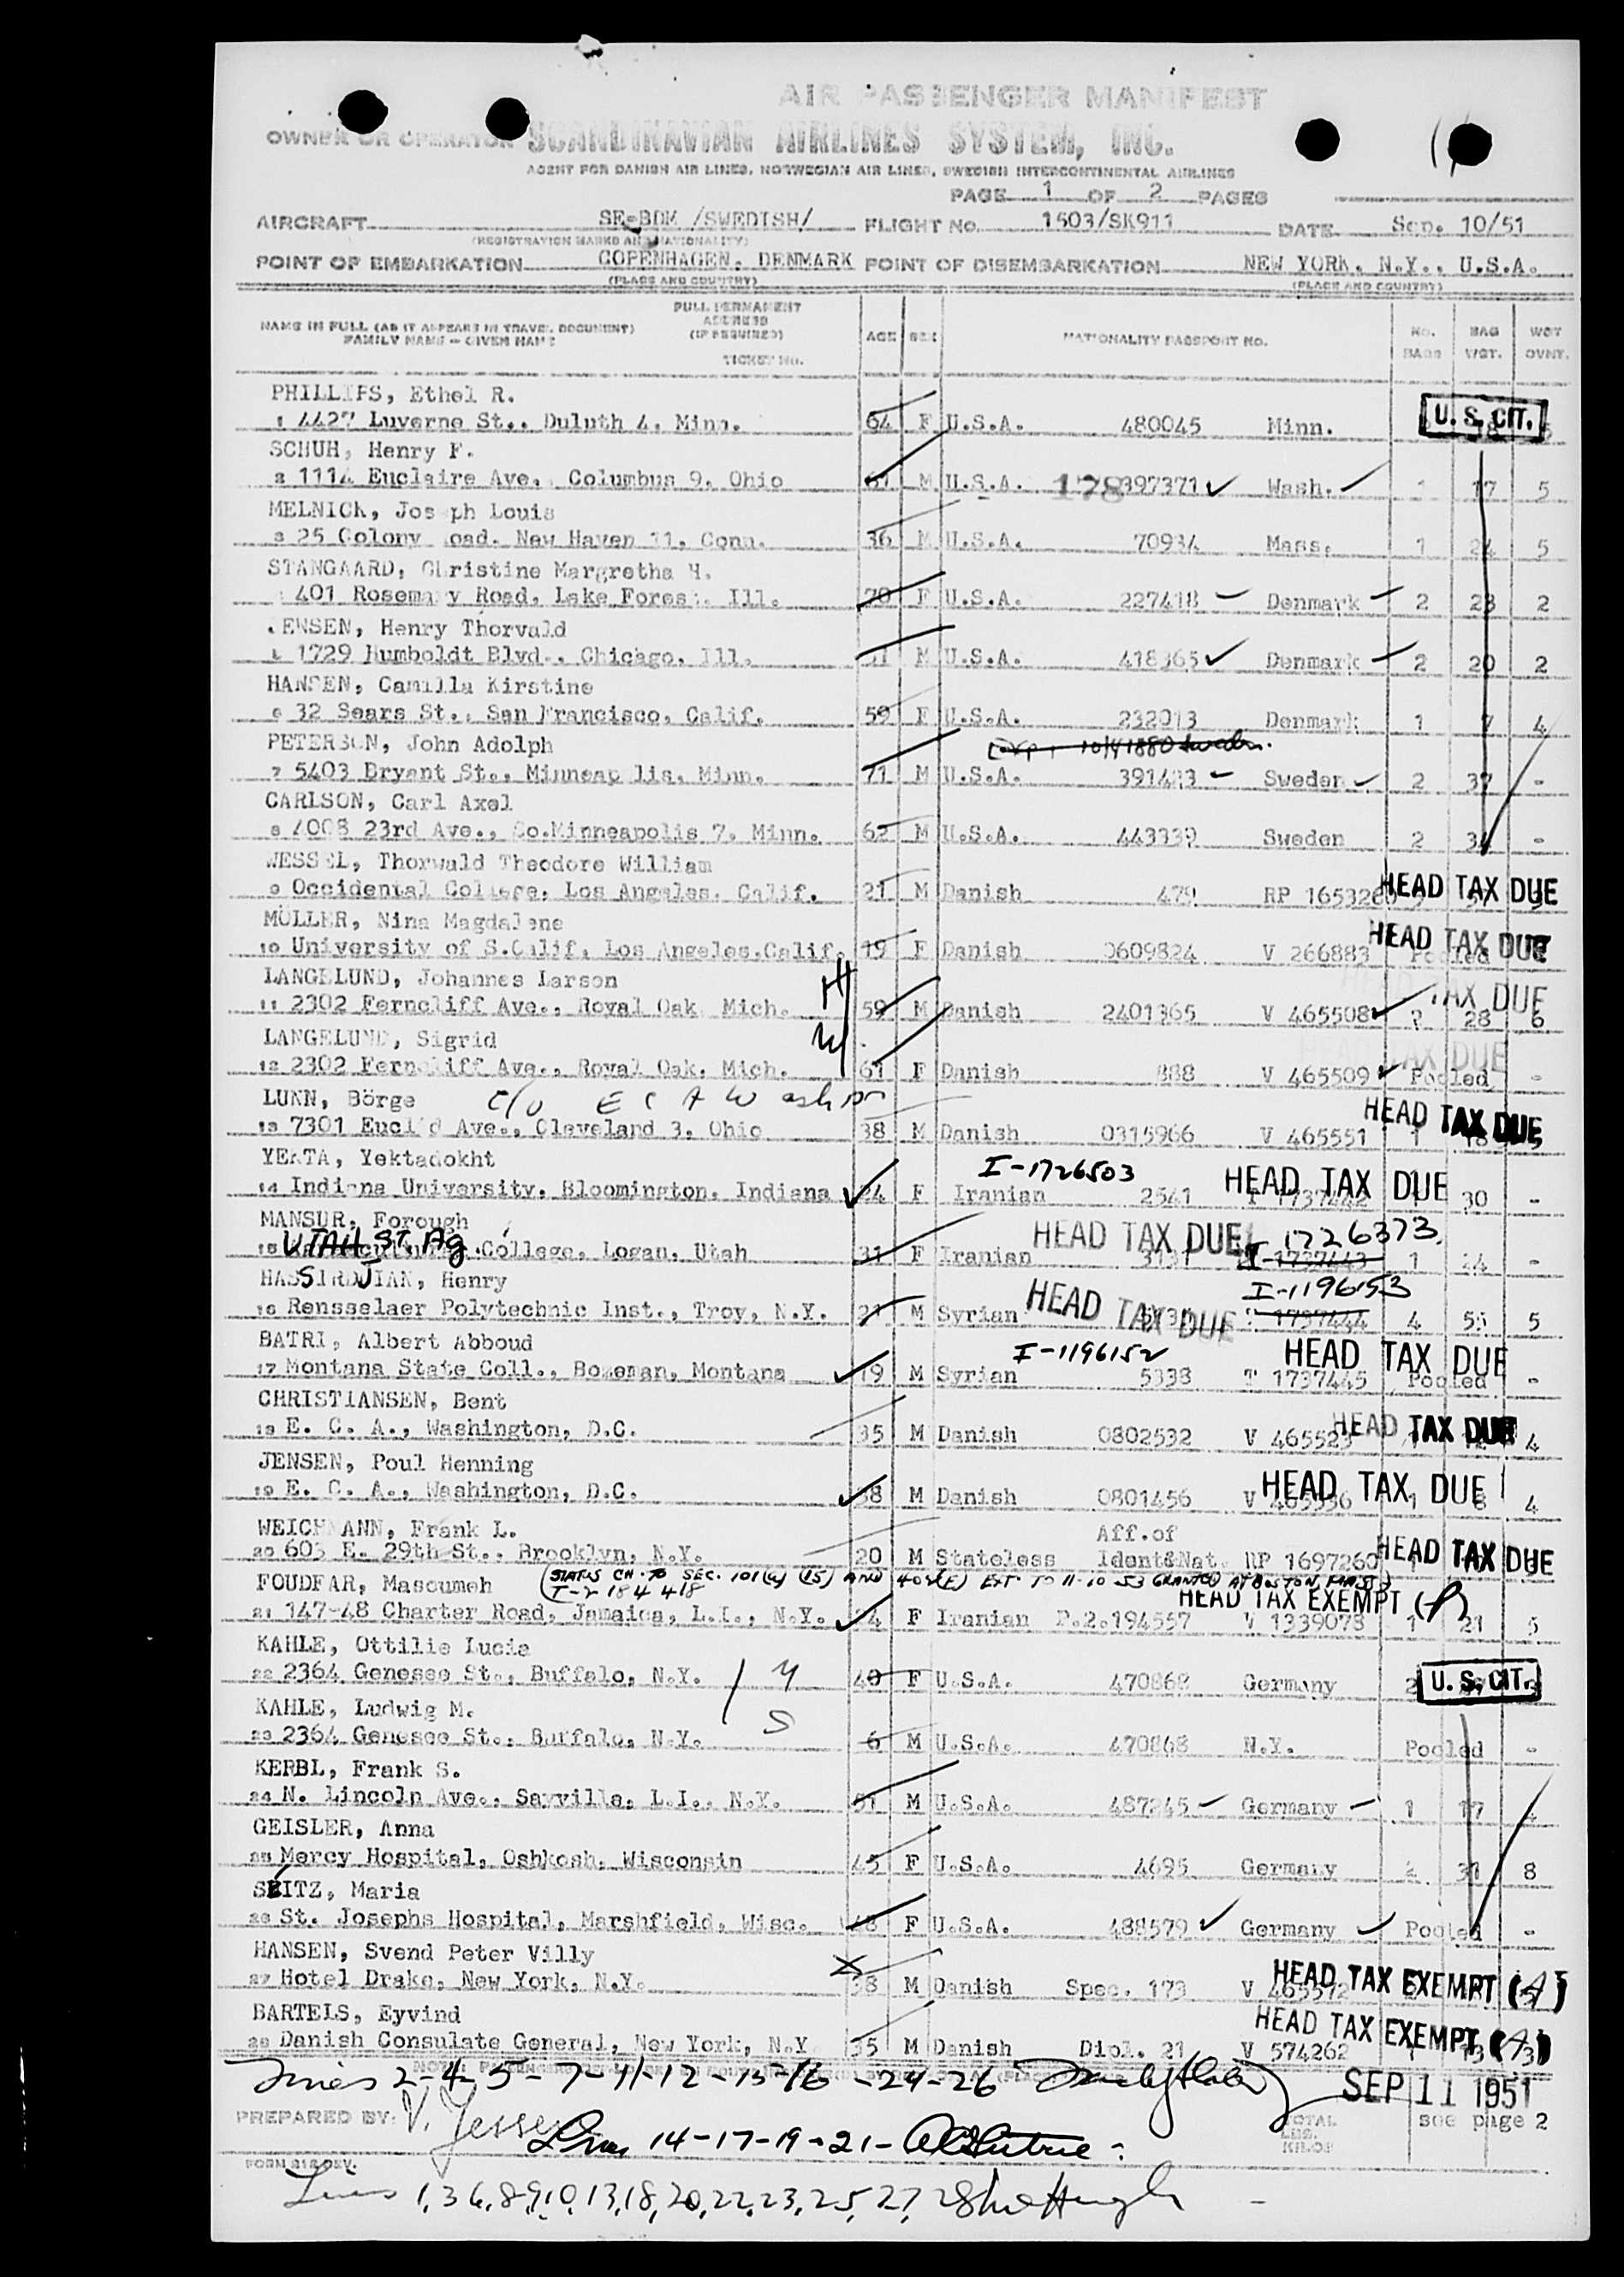 AIR PASSENGER MANIFEST
OWNER OR OPERATOR SCANDINAVIAN AIRLINES SYSTEM, INC.
AGENT FOR DANISH AIR LINES, NORWEGIAN AIR LINES, SWEDISH INTERCONTINENTAL AIRLINES
PAGE 1 OF 2 PAGES
AIRCRAFT SE-BDM /SWEDISH/ FLIGHT No. 1503/SK911 DATE Sep. 10/51
(REGISTRATION MARKS AND NATIONALITY)
POINT OF EMBARKATION COPENHAGEN, DENMARK POINT OF DISEMBARKATION NEW YORK, N.Y., U.S.A.
(PLACE AND COUNTRY) (PLACE AND COUNTRY)
FULL PERMANENT ADDRESS (IF REQUIRED)
NAME IN FULL (AS IT APPEARS IN TRAVEL DOCUMENT) AGE SEX NATIONALITY PASSPORT No. No. BAGS BAG WGT. WGT OVNT.
FAMILY NAME - GIVEN NAME TICKET No.
PHILLIPS, Ethel R.
1 4427 Luverne St., Duluth 4, Minn. 64 F U.S.A. 480045 Minn. U. S. CIT.
SCHUH, Henry F.
2 1114 Euclaire Ave., Columbus 9, Ohio 61 M U.S.A. 178 397371 Wash. 1 17 5
MELNICK, Jos ph Louis
3 25 Colony oad. New Haven 11, Conn. 36 M U.S.A. 70934 Mass. 1 24 5
STANGAARD, Christine Margretha H.
401 Rosemary Road, Lake Forest, Ill. 70 F U.S.A. 227418 Denmark 2 23 2
JENSEN, Henry Thorvald
1729 Humboldt Blvd., Chicago, Ill. 51 M U.S.A. 418365 Denmark 2 20 2
HANSEN, Camilla Kirstine
6 32 Sears St., San Francisco, Calif. 59 F U.S.A. 232013 Denmark 1 7 4
PETERSON, John Adolph 10/4 1880 Sweden.
7 5403 Bryant St., Minneap lis, Minn. 71 M U.S.A. 391433 Sweden 2 37 -
CARLSON, Carl Axel
8 4008 23rd Ave., So.Minneapolis 7, Minn. 62 M U.S.A. 443339 Sweden 2 34 -
WESSEL, Thorwald Theodore William
9 Occidental College, Los Angeles, Calif. 21 M Danish 479 RP 165328 HEAD TAX DUE
MÜLLER, Nina Magdalene
10 University of S.Calif, Los Angeles,Calif. 19 F Danish 0609824 V 266883 Pooled HEAD TAX DUE
LANGELUND, Johannes Larson H
11 2302 Ferncliff Ave., Royal Oak Mich. 59 M Danish 2401365 V 465508 HEAD TAX DUE 28 6
LANGELUND, Sigrid W
12 2302 Ferncliff Ave., Royal Oak, Mich. 61 F Danish 888 V 465509 Pooled - HEAD TAX DUE
LUNN, Börge c/o E C A Washn
13 7301 Euclid Ave., Cleveland 3, Ohio 38 M Danish 0315966 V 465551 HEAD TAX DUE
YEKTA, Yektadokht I-1726503
14 Indiana University, Bloomington, Indiana 24 F Iranian 2541 T 1737442 HEAD TAX DUE 30 -
MANSUR, Forough HEAD TAX DUE I-1726373
15 UTAH ST. Ag. College, Logan, Utah 31 F Iranian 3131 1737443 1 24 -
HASSIRDJIAN, Henry I-1196153
16 Rensselaer Polytechnic Inst., Troy, N.Y. 21 M Syrian HEAD TAX DUE 1737444 4 55 5
BATRI, Albert Abboud I-1196152
17 Montana State Coll., Bozeman, Montana 19 M Syrian 5338 T 1737445 Pooled - HEAD TAX DUE
CHRISTIANSEN, Bent
18 E. C. A., Washington, D.C. 35 M Danish 0802532 V 465525 HEAD TAX DUE 4
JENSEN, Poul Henning
19 E. C. A., Washington, D.C. 38 M Danish 0801456 V 465536 HEAD TAX DUE 4
WEICHMANN, Frank L. Aff.of
20 603 E. 29th St., Brooklyn, N.Y. 20 M Stateless Ident&Nat. RP 1697260 HEAD TAX DUE
FOUDFAR, Masoumeh (STATUS CH. TO SEC. 101(a) (15) AND 402(E) EXT. TO 11-10-53 GRANTED AT BOSTON, MASS)
I-2184418
21 147-48 Charter Road, Jamaica, L.I., N.Y. 24 F Iranian P.2.194557 V 1339078 HEAD TAX EXEMPT 1 21 5
KAHLE, Ottilie Lucie
22 2364 Genesee St., Buffalo, N.Y. M 40 F U.S.A. 470868 Germany 2 U. S. CIT.
KAHLE, Ludwig M. S
23 2364 Genesee St., Buffalo, N.Y. 6 M U.S.A. 470868 N.Y. Pooled -
KERBL, Frank S.
24 N. Lincoln Ave., Sayville, L.I., N.Y. 51 M U.S.A. 487245 Germany 1 17 4
GEISLER, Anna
25 Mercy Hospital, Oshkosh, Wisconsin 45 F U.S.A. 4695 Germany 2 31 8
SEITZ, Maria
26 St. Josephs Hospital, Marshfield, Wisc. 48 F U.S.A. 488579 Germany Pooled -
HANSEN, Svend Peter Villy X
27 Hotel Drake, New York, N.Y. 38 M Danish Spec. 173 V 465572 HEAD TAX EXEMPT (A)
BARTELS, Eyvind
28 Danish Consulate General, New York, N.Y. 35 M Danish Dipl. 21 V 574262 HEAD TAX EXEMPT (A)
Lines 2-4-5-7-11-12-15-16-24-26
SEP 11 1951
PREPARED BY: V. Jessen TOTAL LBS. KILOS see page 2
Lines 14-17-19-21-
FORM 218 REV.
Lines 1,3,6,8,9,10,13,18,20,22,23,25,27,28